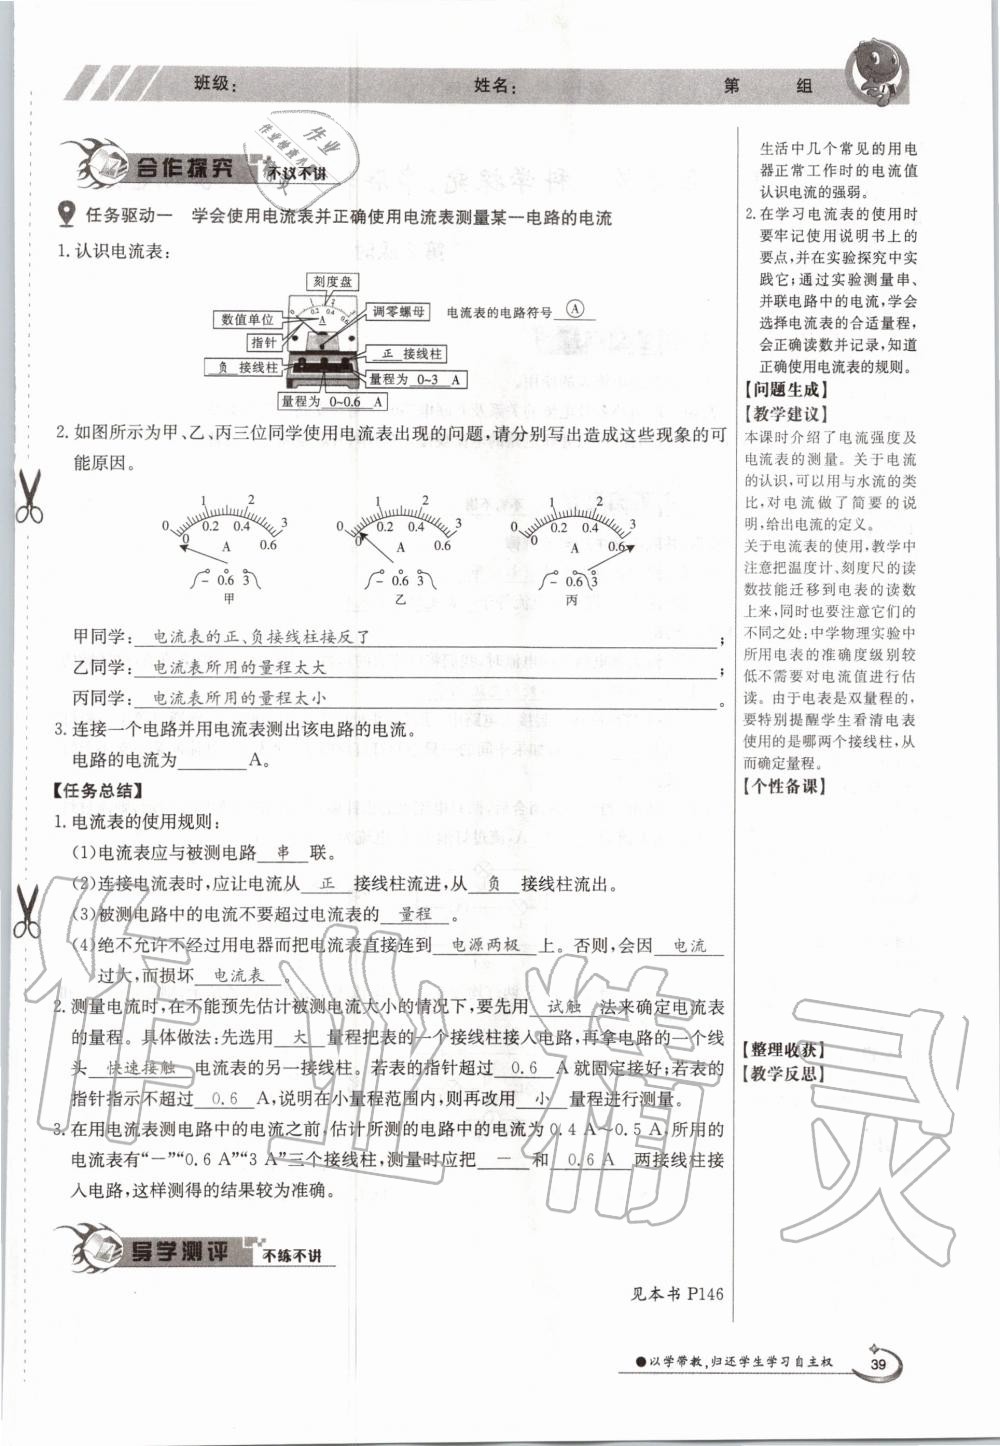 班级:
姓名:
第 组
合作探究 不议不讲
任务驱动一 学会使用电流表并正确使用电流表测量某一电路的电流
1. 认识电流表:
刻度盘
数值单位
指针
负 接线柱
量程为 0~0.6 A
调零螺母
正 接线柱
量程为 0~3 A
电流表的电路符号 A
2. 如图所示为甲、乙、丙三位同学使用电流表出现的问题,请分别写出造成这些现象的可
能原因。
0 1 2 3
0 0.2 0.4 0.6
A
- 0.6 3
甲
0 1 2 3
0 0.2 0.4 0.6
A
- 0.6 3
乙
0 1 2 3
0 0.2 0.4 0.6
A
- 0.6 3
丙
甲同学: 电流表的正、负接线柱接反了 ;
乙同学: 电流表所用的量程太大 ;
丙同学: 电流表所用的量程太小 。
3. 连接一个电路并用电流表测出该电路的电流。
电路的电流为______A。
【任务总结】
1. 电流表的使用规则:
(1)电流表应与被测电路 串 联。
(2)连接电流表时,应让电流从 正 接线柱流进,从 负 接线柱流出。
(3)被测电路中的电流不要超过电流表的 量程 。
(4)绝不允许不经过用电器而把电流表直接连到 电源两极 上。否则,会因 电流
过大,而损坏 电流表 。
2. 测量电流时,在不能预先估计被测电流大小的情况下,要先用 试触 法来确定电流表
的量程。具体做法:先选用 大 量程把表的一个接线柱接入电路,再拿电路的一个线
头 快速接触 电流表的另一接线柱。若表的指针超过 0.6 A就固定接好;若表的
指针指示不超过 0.6 A,说明在小量程范围内,则再改用 小 量程进行测量。
3. 在用电流表测电路中的电流之前,估计所测的电路中的电流为0.4 A~0.5 A,所用的
电流表有“-”“0.6 A”“3 A”三个接线柱,测量时应把 - 和 0.6 A 两接线柱接
入电路,这样测得的结果较为准确。
导学测评 不练不讲
见本书 P146
生活中几个常见的用电
器正常工作时的电流值
认识电流的强弱。
2. 在学习电流表的使用时
要牢记使用说明书上的
要点,并在实验探究中实
践它;通过实验测量串、
并联电路中的电流,学会
选择电流表的合适量程,
会正确读数并记录,知道
正确使用电流表的规则。
【问题生成】
【教学建议】
本课时介绍了电流强度及
电流表的测量。关于电流
的认识,可以用与水流的类
比,对电流做了简要的说
明,给出电流的定义。
关于电流表的使用,教学中
注意把温度计、刻度尺的读
数技能迁移到电表的读数
上来,同时也要注意它们的
不同之处:中学物理实验中
所用电表的准确度级别较
低不需要对电流值进行估
读。由于电表是双量程的,
要特别提醒学生看清电表
使用的是哪两个接线柱,从
而确定量程。
【个性备课】
【整理收获】
【教学反思】
●以学带教,归还学生学习自主权
39
作业精灵